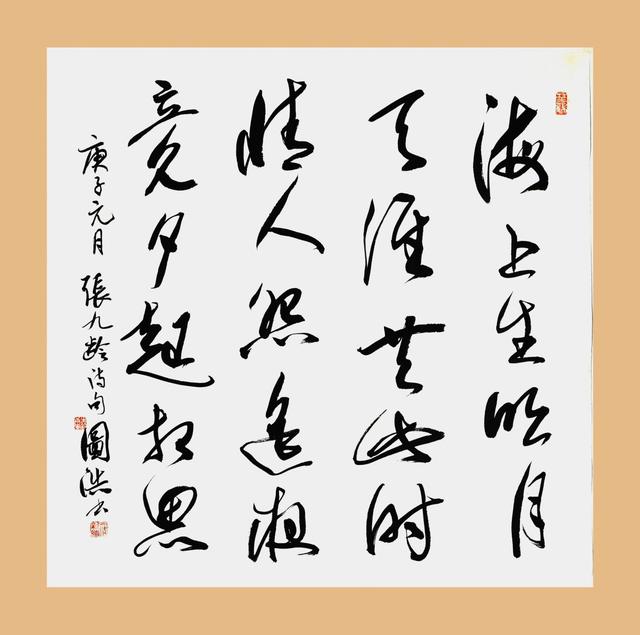 海上生明月
天涯共此时
情人怨遥夜
竟夕起相思
庚子元月 張九龄诗句 圖书